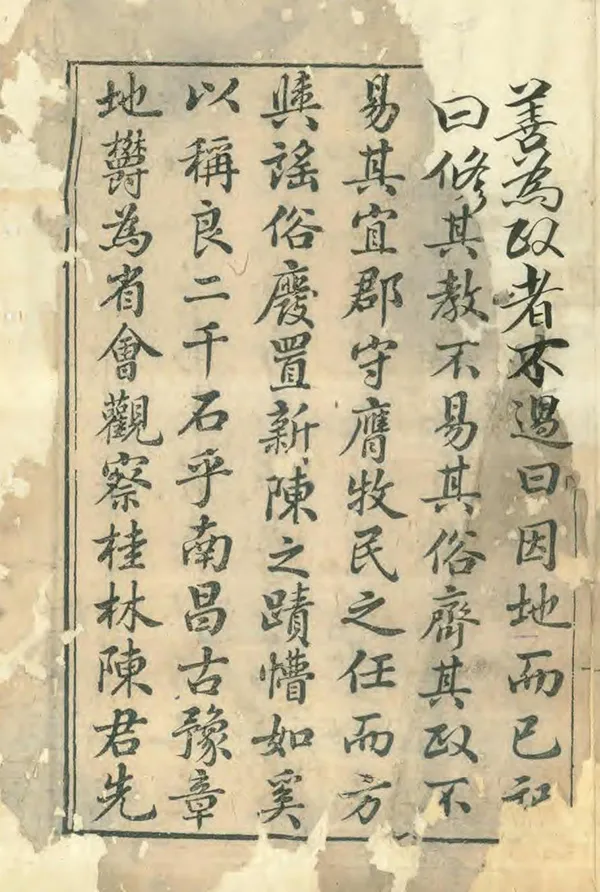 善為政者不過曰因地而已
曰修其教不易其俗齊其政不
易其宜郡守膺牧民之任而方
輿謠俗廢置新陳之蹟懵如奚
以稱良二千石乎南昌古豫章
地欝為省會觀察桂林陳君先